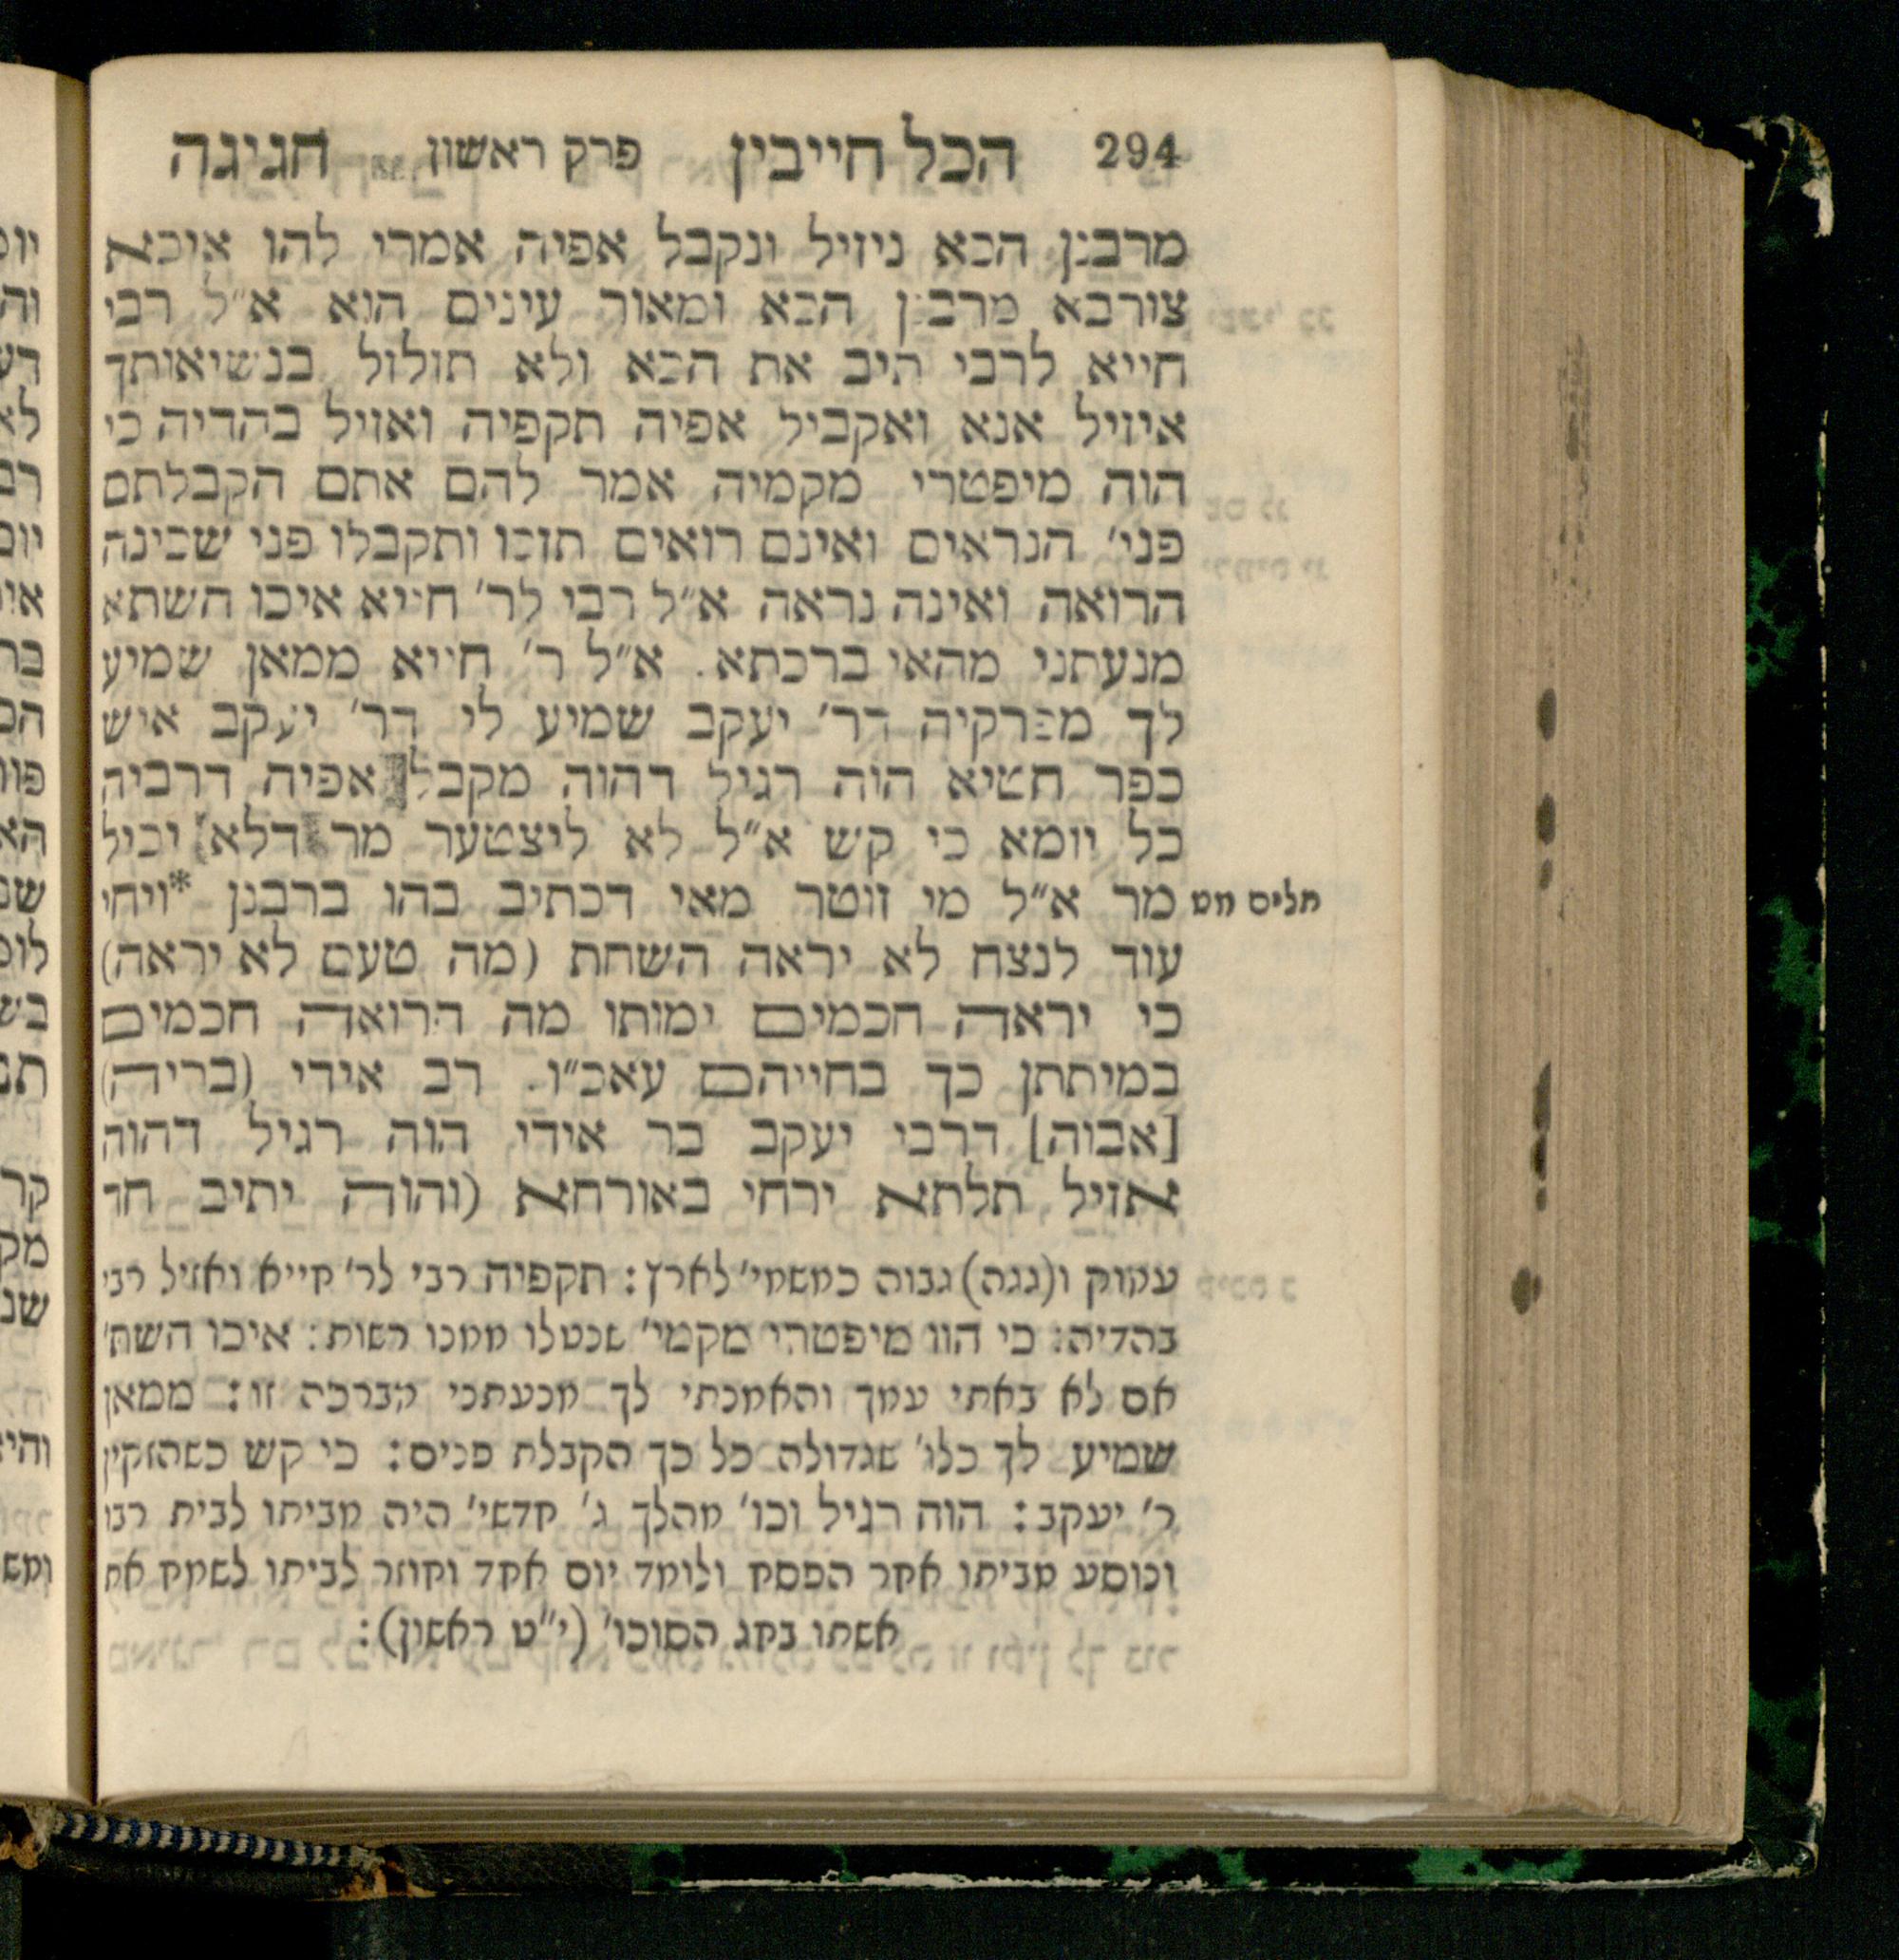 294 הכל חייבין פרק ראשון חגיגה
מרבנן הכא ניזיל ונקבל אפיה אמרי להו איכא
צורבא מרבנן הכא ומאור עינים הוא א״ל רבי
חייא לרבי תיב את הכא ולא תזלזל בנשיאותך
איזיל אנא ואקביל אפיה תקפיה ואזיל בהדיה כי
הוה מיפטרי מקמיה אמר להם אתם הקבלתם
פני׳ הנראים ואינם רואים תזכו ותקבלו פני שכינה
הרואה ואינה נראה א״ל רבי לר׳ חייא איכו השתא
מנעתני מהאי ברכתא. א״ל ר׳ חייא ממאן שמיע
לך מפרקיה דר׳ יעקב שמיע לי דר׳ יעקב איש
כפר חטיא הוה רגיל דהוה מקבל אפיה דרביה
כל יומא כי קש א״ל לא ליצטער מר דלא יכיל
מר א״ל מי זוטר מאי דכתיב בהו ברבנן *ויחי
תלים מט
עוד לנצח לא יראה השחת (מה טעם לא יראה)
כי יראה חכמים ימותו מה הרואה חכמים
במיתתן כך בחייהם עאכ״ו. רב אידי (בריה)
[אבוה] דרבי יעקב בר אידי הוה רגיל דהוה
אזיל תלתא ירחי באורחא (והוה יתיב חד
עמוק ו(גגה) גבוה כמשמי׳ לארץ: תקפיה רבי לר׳ חייא ואזיל רבי
בהדיה: כי הוו מיפטרי מקמי׳ שנטלו ממנו רשות: איכו השת׳
אם לא באתי עמך והאמנתי לך מנעתני מברכה זו: ממאן
שמיע לך כלו׳ שגדולה כל כך הקבלת פנים: כי קש כשהזקין
ר׳ יעקב: הוה רגיל וכו׳ מהלך ג׳ חדשי׳ היה מביתו לבית רבו
ונוסע מביתו אחר הפסח ולומד יום אחד וחוזר לביתו לשמח את
אשתו בחג הסוכו׳ (י״ט ראשון):